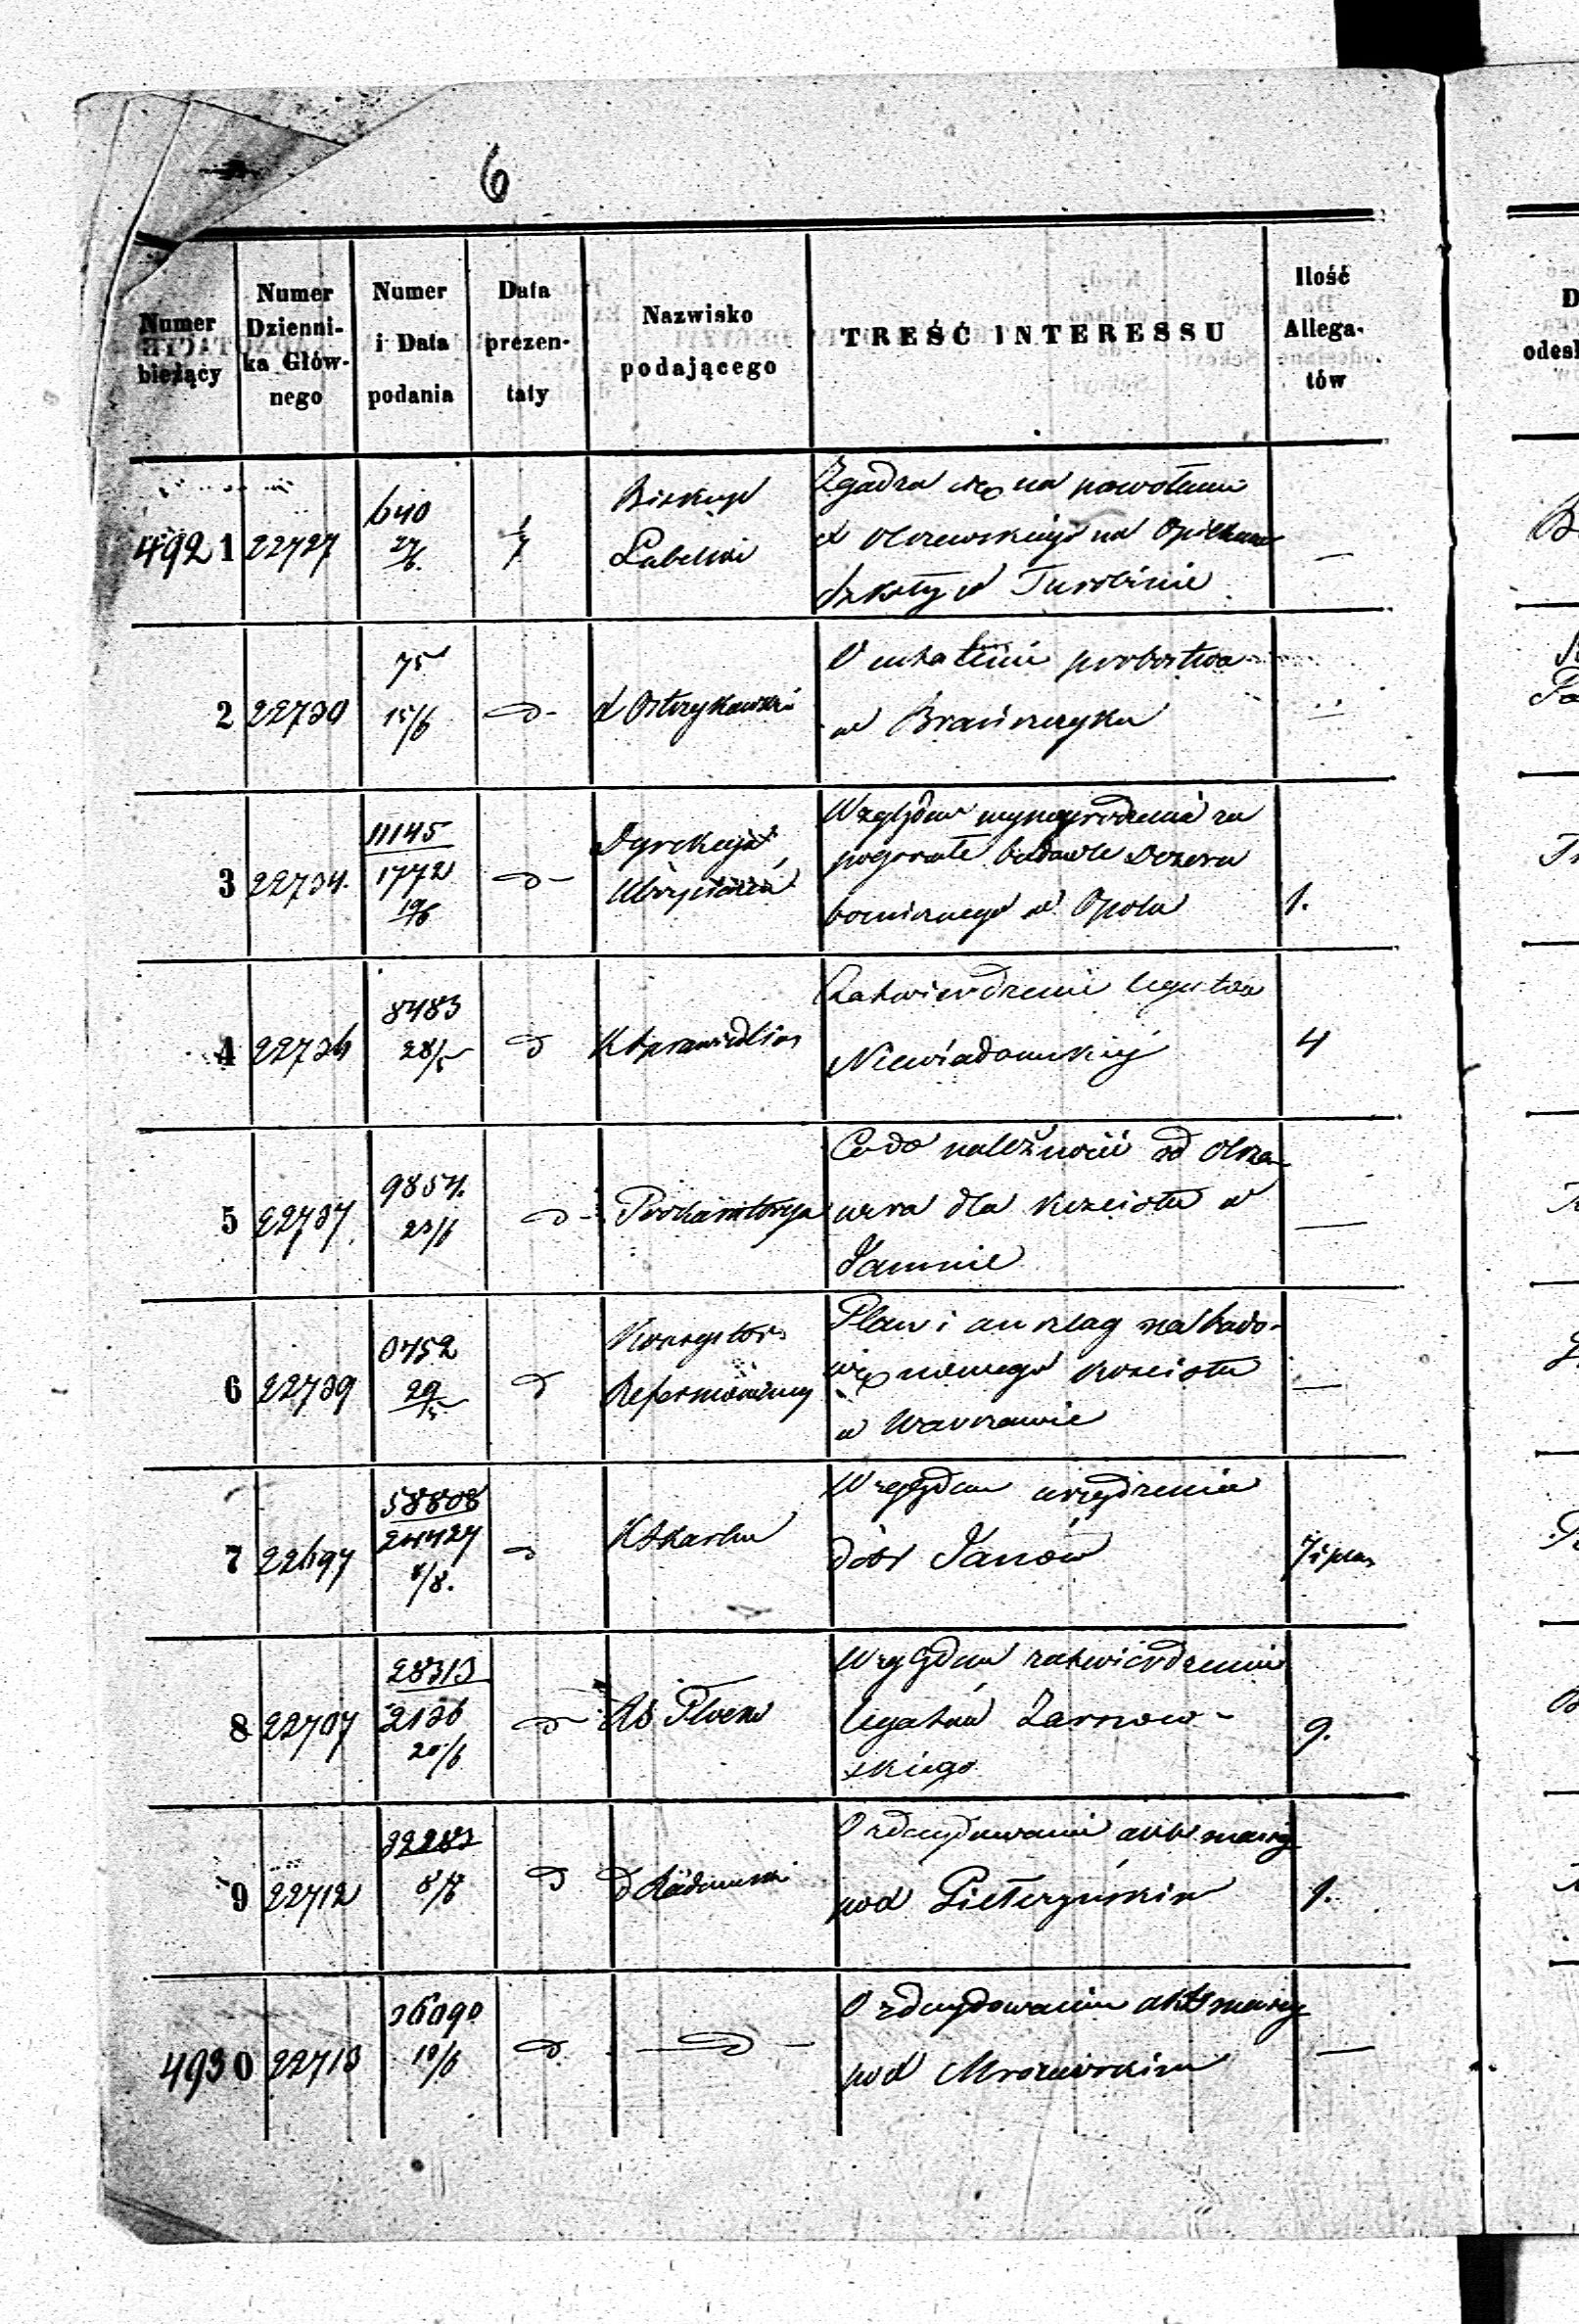 6
Numer bieżący | Numer Dzienni- ka Głów- nego | Numer i Data podania | Data prezen- taty | Nazwisko podającego | TREŚĆ INTERESSU | Ilość Allega- tów
4921 | 22727 | 640 27/6 | 1/7 | Biskup Lubelski | Zgadza się na powołanie
X Olszewskiego na Opiekuna
szkoły w Turobinie | —
2 | 22730 | 75 15/6 | d- | X Ostrzykowski | probostwa
w Brańszczyku
3 | 22734. | 11145 1772 19/6 | d- | Dyrekcya Ubezpieczeń | Względem wynagrodzenia za
pogorzałe budowle
w Opolu | 1.
4 | 22736 | 8483 28/5 | d | K Sprawiedliw | Zatwierdzenie legatu
Niewiadomskiej | 4
5 | 22737. | 9854. 23/6 | d- | Prokuratorya | Co do należności od
dla kościoła w
Jamnie | —
6 | 22739 | 0452 29/5 | d | Konsystorz Reformowany | Plan i anszlag na budo-
wę nowego kościoła
w Warszawie | —
7 | 22697 | 58808 24427 8/8. | d | K Skarbu | Względem urządzenia
dóbr Janów | 7 i plan
8 | 22707 | 28313 2136 20/6 | d- | Płocki | Względem zatwierdzenia
legatów Żarnow-
skiego | 9.
9 | 22712 | 32283 | d | D Radomski | O zdecydowanie akt massy
pod | 1.
4930 | 22713 | 36090 19/6 | d | —d— | O zdecydowanie akt massy
pod Mrozowskim | —